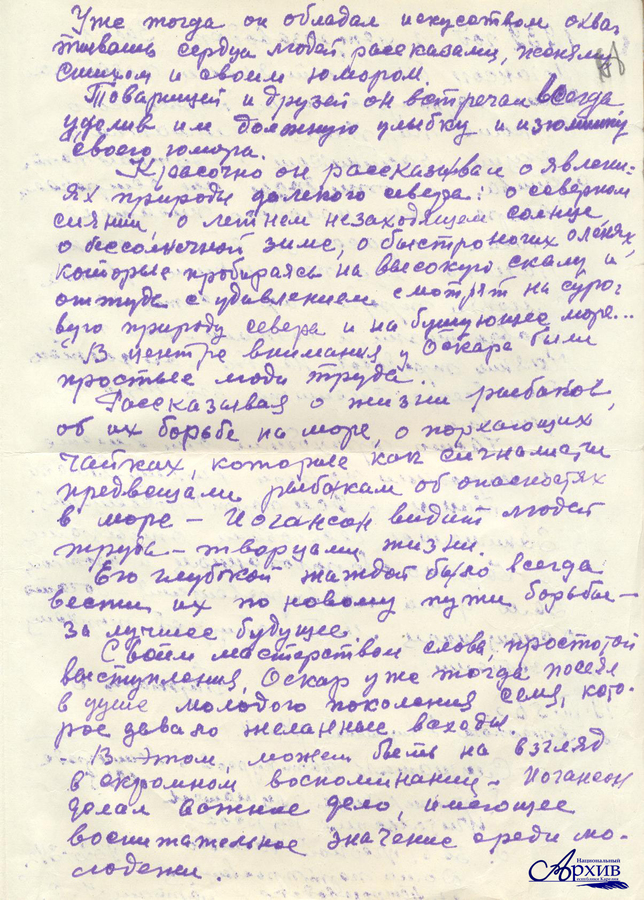 Уже тогда он обладал искусством охва-
тывать сердца людей рассказами, песнями,
стихом и своим юмором.
Товарищей и друзей он встречал всегда
уделив им должную улыбку и изюминку
своего юмора.
Красочно он рассказывал о явлени-
ях природы далекого севера: о северном
сиянии, о летнем незаходящем солнце,
о бессолнечной зиме, о быстроногих оленях,
которые пробираясь на высокую скалу и
оттуда с удивлением смотрят на суро-
вую природу севера и на бушующее море...
В центре внимания у Оскара были
простые люди труда...
Рассказывая о жизни рыбаков,
об их борьбе на море, о порхающих
чайках, которые как сигналисты
предвещали рыбакам об опасностях
в море – Иогансон видит людей
труда – творцами жизни.
Его глубокой жаждой было всегда
вести их по новому пути борьбы –
за лучшее будущее.
Своим мастерством слова, простотой
выступления, Оскар уже тогда посеял
в душе молодого поколения семя, кото-
рое давало желанные всходы.
В этом, может быть на взгляд
в скромном воспоминании – Иогансон
делал важное дело, имеющее
воспитательное значение среди мо-
лодежи.
Национальный
Архив
республики Карелия